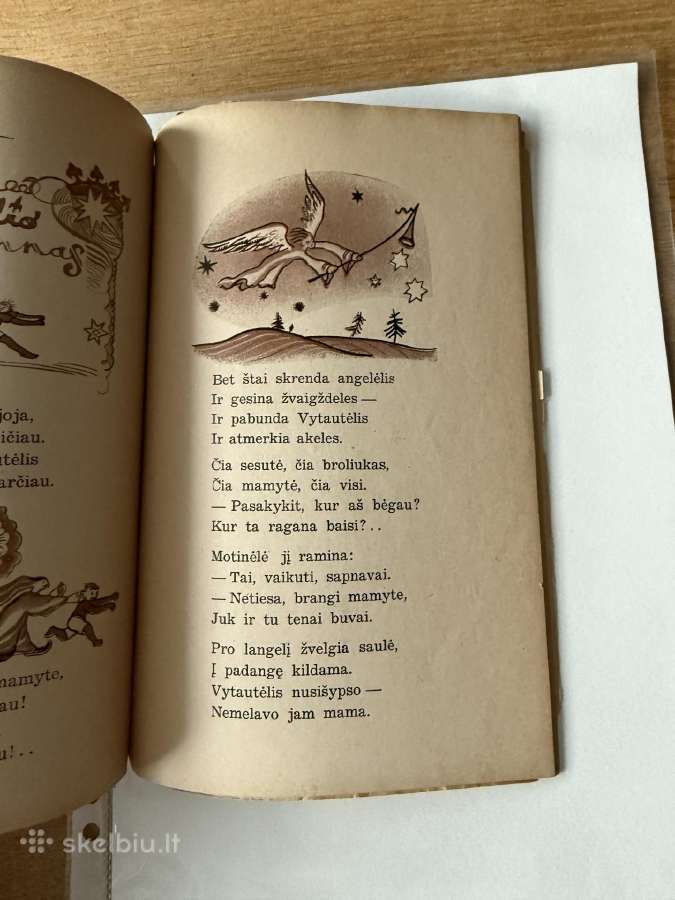 joja,
ičiau.
utėlis
arčiau.
mamyte,
au!
u!..
Bet štai skrenda angelėlis
Ir gesina žvaigždeles —
Ir pabunda Vytautėlis
Ir atmerkia akeles.
Čia sesutė, čia broliukas,
Čia mamytė, čia visi.
— Pasakykit, kur aš bėgau?
Kur ta ragana baisi?..
Motinėlė jį ramina:
— Tai, vaikuti, sapnavai.
— Netiesa, brangi mamyte,
Juk ir tu tenai buvai.
Pro langelį žvelgia saulė,
Į padangę kildama.
Vytautėlis nusišypso —
Nemelavo jam mama.
skelbiu.lt